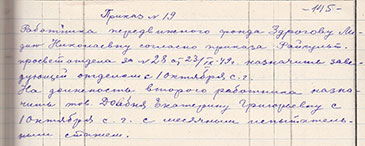 Приказ № 19
-145-
Работника передвижного фонда Здрогову Ли-
дию Николаевну согласно приказа Райкульт-
просветотдела за № 28 от 23/IX-49. назначить заве-
дующей отделом с 1 октября с.г.
На должность второго работника назна-
чить тов Довбня Екатерину Григорьевну с
1 октября с. г. с месячным испытатель-
ным стажем.